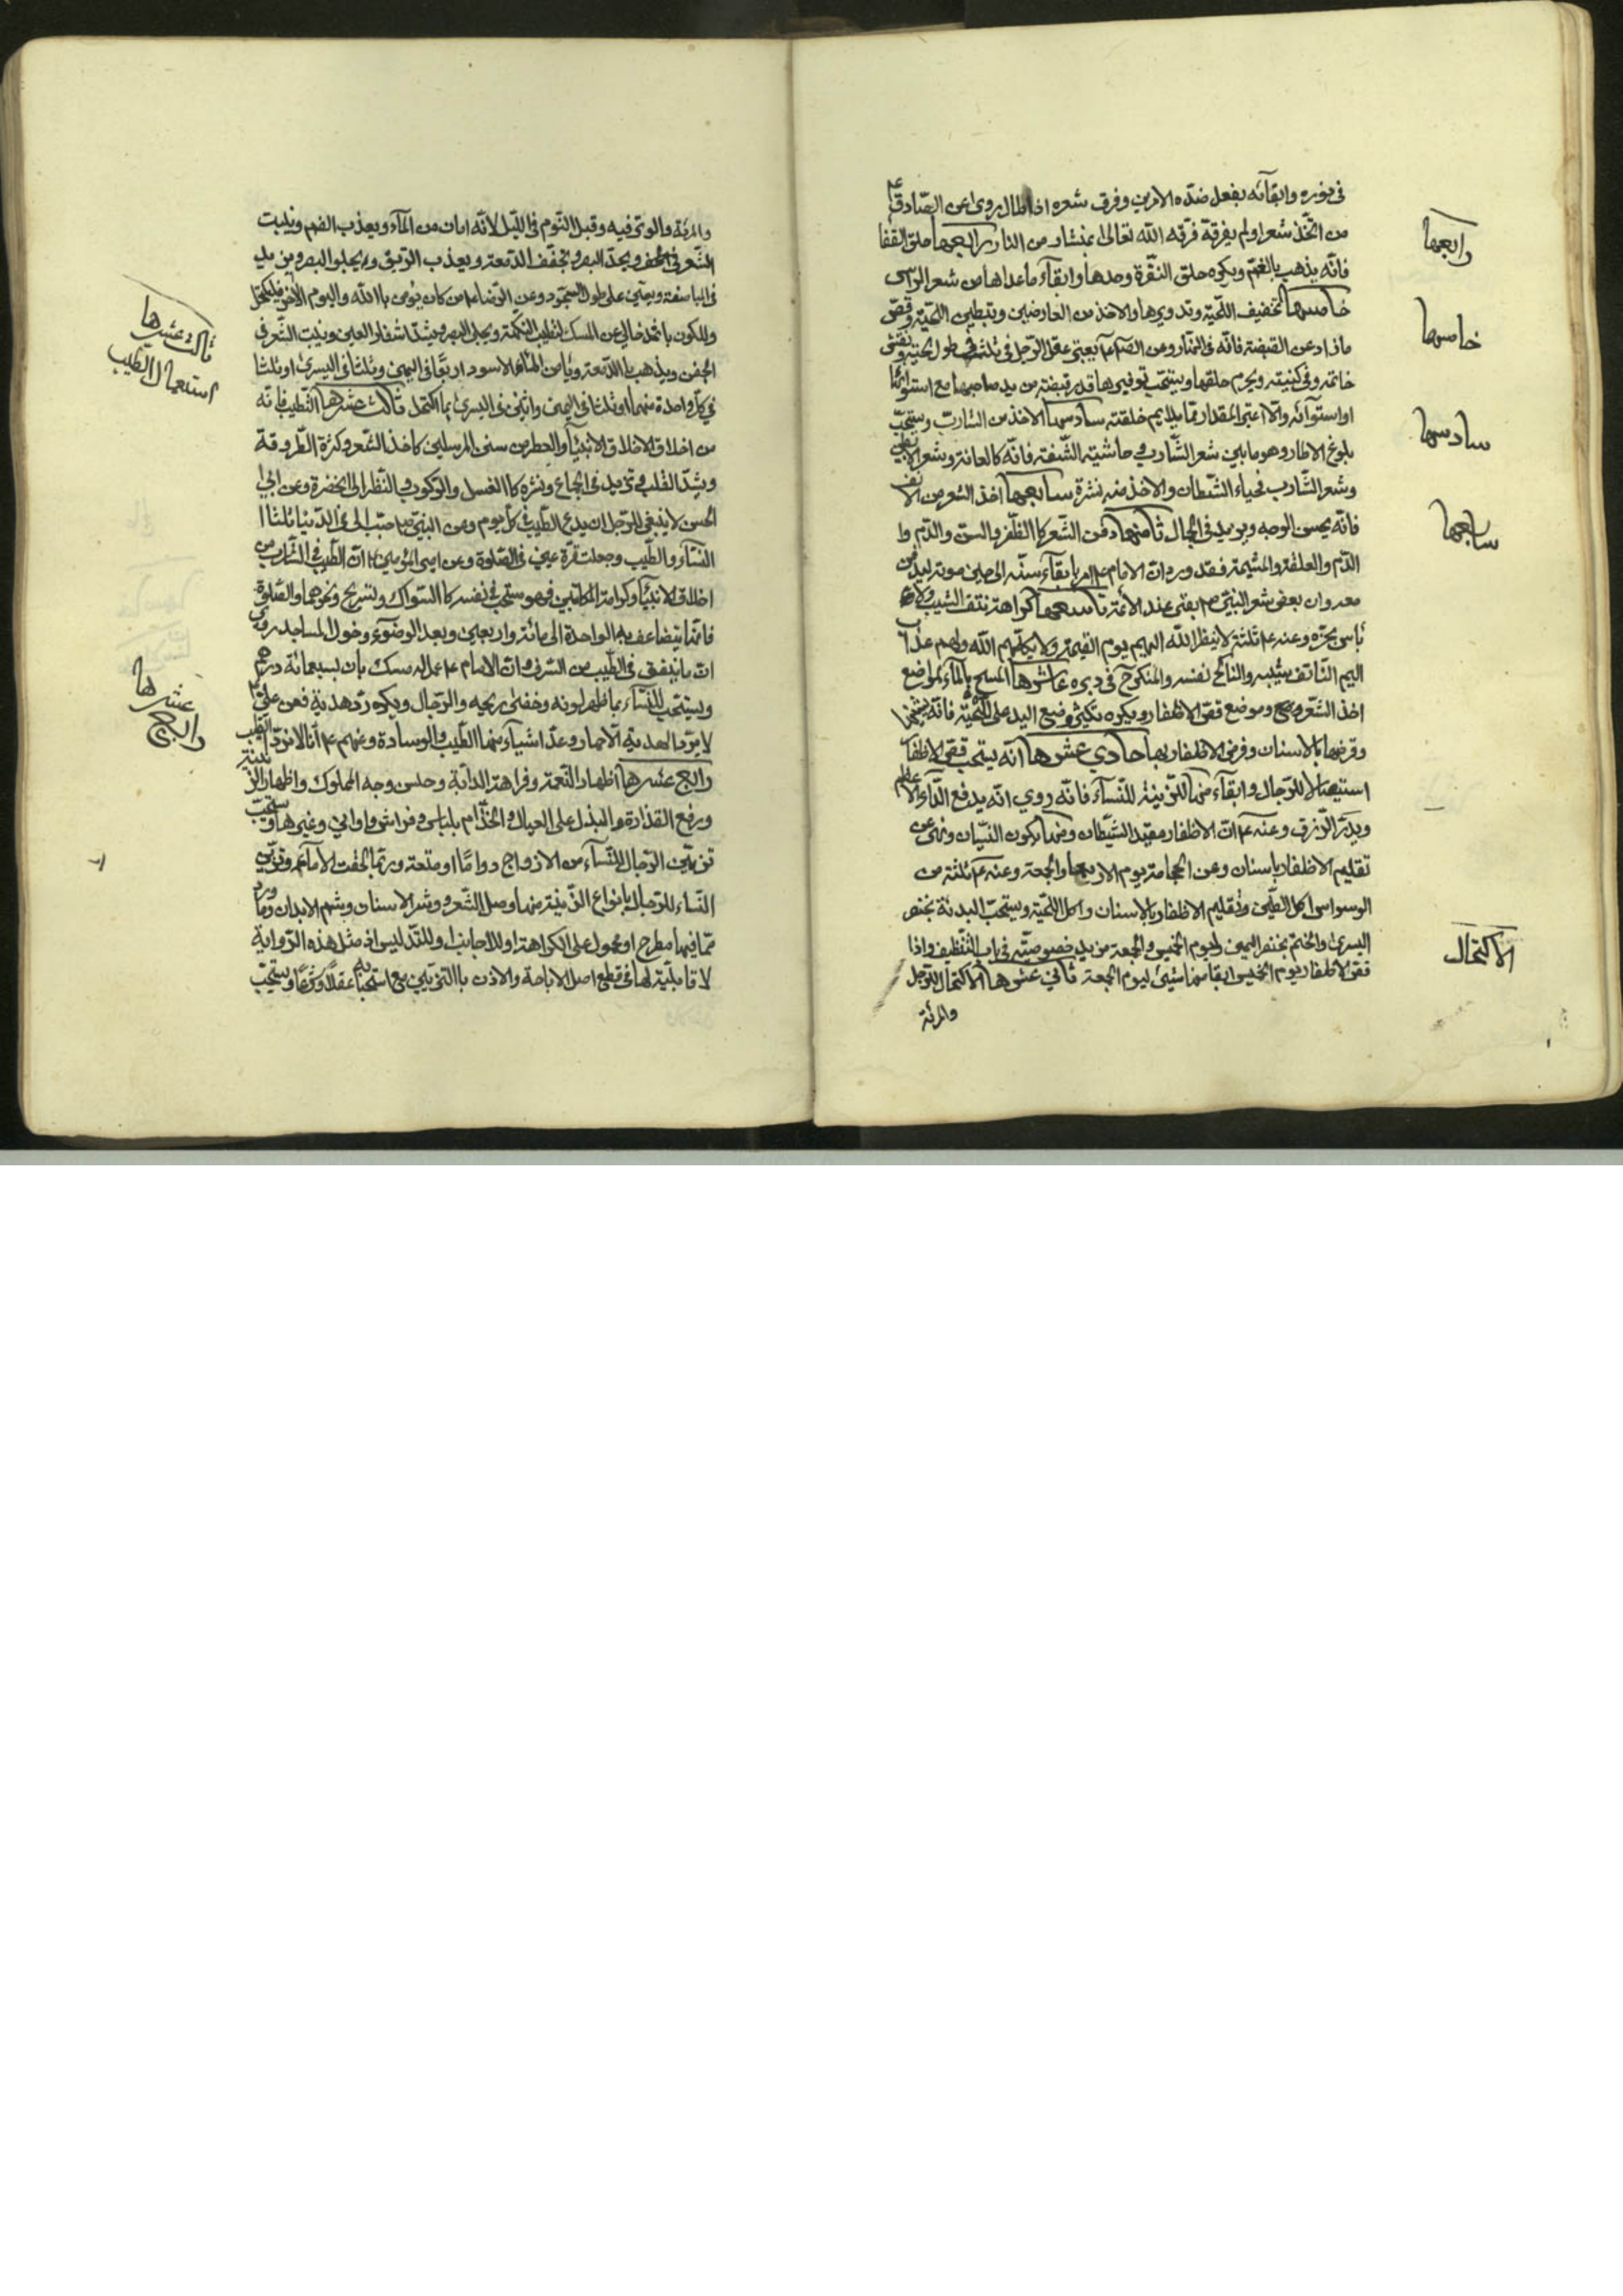 في نوره وابقآئه بفعل ضدّه الامرين وفرق شعره اذا طال روى عن الصّادق ع
من اتّخذ شعرا ولم يفرقه فرقه الله تعالى بمنشار من النار رابعها حلق القفا
رابعها
فانّه يذهب بالغمّ ويكره حلق النقرة وحدها وابقآء ماعداها من شعر الرّاس
خامسها تخفيف اللّحية وتدويرها والاخذ من العارضين وتبطين اللّحية وقصّ
خامسها
مازاد عن القبضة فانّه في النّار وعن الصّ ع يعتبر عقل الرّجل في ثلث في طول لحيته ونقش
خاتمه وفي كنيته ويحرم حلقها ويستحبّ توفيرها قدر قبضة من يد صاحبها مع استوائها
او استوآئه والاّ اعتبر المقدار ممّا يلايم خلقته سادسها الاخذ من الشارب ويستحبّ
سادسها
بلوغ الاطار وهو مابين شعر الشّارب وحاشية الشّفة فانّه كالعانة وشعر الابطين
وشعر الشّارب مخباء الشّيطان والاخذ منه نشرة سابعها اخذ الشعر من الانف
سابعها
فانّه يحسن الوجه ويزيد في الجمال ثامنها دفن الشّعر كا الظّفر والسن والدّم وا
الدّم والعلقة والمشيمة فقد ورد انّ الامام ع امر بابقآء سنّه الى حين موته ليدفن
معه وان بعض شعر النبيّ ص بقى عند الأئمة تاسعها كراهة نتف الشيب ولا
بأس بجزّه وعنه ع ثلثة لاينظر الله اليهم يوم القيمة ولا يكلّمهم الله ولهم عذاب
اليم النّاتف شيبه والنّاكح نفسه والمنكوح في دبره عاشرها المسح بالمآء لمواضع
اخذ الشّعر وموضع قصّ الاظفار ويكره تكثير وضع اليد على اللّحية فانّه يشينها
وقرضها بالاسنان وقرض الاظفار بها حادي عشرها انّه يستحبّ قصّ الاظفار
استيصالا للرّجال وابقآء منها للزّينة للنّسآء فانّه روي انّه يدفع الدّاء الاعظم
ويدرّ الرّزق وعنه ع انّ الاظفار مقيل الشيّطان ومنها يكون النّسيان ونهى عن
تقليم الاظفار بالاسنان وعن الحجامة يوم الاربعا والجمعة وعنه ع ثلثة من
الوسواس اكل الطّين وتقليم الاظفار بالاسنان واكل اللّحية ويستحبّ البدئة بخنصر
اليسرى والختم بخنصر اليمين وليوم الخميس والجمعة مزيد خصوصيّة في باب التّنظيف واذا
الاكتحال
قصّ الاظفار يوم الخميس ابقا منها شيئ ليوم الجمعة ثاني عشرها الاكتحال للرّجل
والمرئة
والمرئة والوتر فيه وقبل النّوم في اللّيل لانّه امان من المآء ويعذب الفم وينبت
الشّعر في الجفن ويحدّ البصر ويخفّف الدّمعة ويعذب الرّيق ويجلوا البصر ومن يد
في المباضعة ويعين على طول السّجود وعن الرّضا ع من كان يؤمن باا الله واليوم الآخر فليكتحل
وليكون باثمد خالي عن المسك لتطيب النّكهة ويجلي البصر ويشدّ اشفار العين وينبت الشّعر في
ثالث عشرها
استعمال الطيب
الجفن ويذهب باا الدّمعة ويأمن المآء الاسود اربعًا في اليمين وثلثا في اليسرى او ثلثا
في كلّ واحدة منهما او ثلثا في اليمين واثنين في اليسرى بما اكتحل ثالث عشرها التّطيب فانّه
من اخلاق الاخلاق الانبيآء والعطر من سنن المرسلين كاخذ الشّعر وكثرة الطّروقة
ويشدّ القلب ويزيد في الجماع ونشره كا الغسل والرّكوب والنّظر الى الخضرة وعن ابي
الحسن لاينبغي للرّجل ان يدع الطّيب في كلّ يوم وعن النبيّ ص حبّب الى في الدّنيا ثلثا ا
النسآء والطّيب وجعلت قرّة عيني في الصّلوة وعن امير المؤمنين ع انّ الطّيب في الشّارب من
اخلاق الانبيآء وكرامة الكاتبين فهو مستحبّ في نفسه كا السّواك وتسريح ونحوهما والصّلوة
فانّها يتضاعف به الواحدة الى مائة واربعين وبعد الوضوء ودخول المساجد وروى
انّ ماينفق في الطّيب من السّرف وانّ الامام ع عمل له مسك بان بسبعمائة درهم
ويستحبّ للنّسآء بما ظهر لونه وخفى ريحه والرّجال ويكره ردّ هديه فعن علي ع
رابع عشرها
لايردّ الهدية الاحمار وعدّ اشيآء منها الطّيب والوسادة وعنهم ع انّا لانردّ الطيب
رابع عشرها اظهار النّعمة وفراهة الدابّة وحسن وجه المملوك واظهار الزّينة
ورفع القذارة والبذل على العيال والخدّام بلباس وفراش واواني وغيرها ويستحبّ
تزيين الرّجال للنّسآء من الازواج دوامًا او متعة وربّما الحقت الامآء وتزيين
النّساء للرّجال بانواع الزّينة ومنها وصل الشّعر ووشر الاسنان وشم الابدان وما ورد
ممّا فيها مطرح او محمول على الكراهة او للاجانب او للتّدليس اذ مثل هذه الرّواية
لا قابليّة لها في قطع اصل الاباحة والاذن باا التزيين مع استحبابه عقلاً وشرعًا ويستحبّ